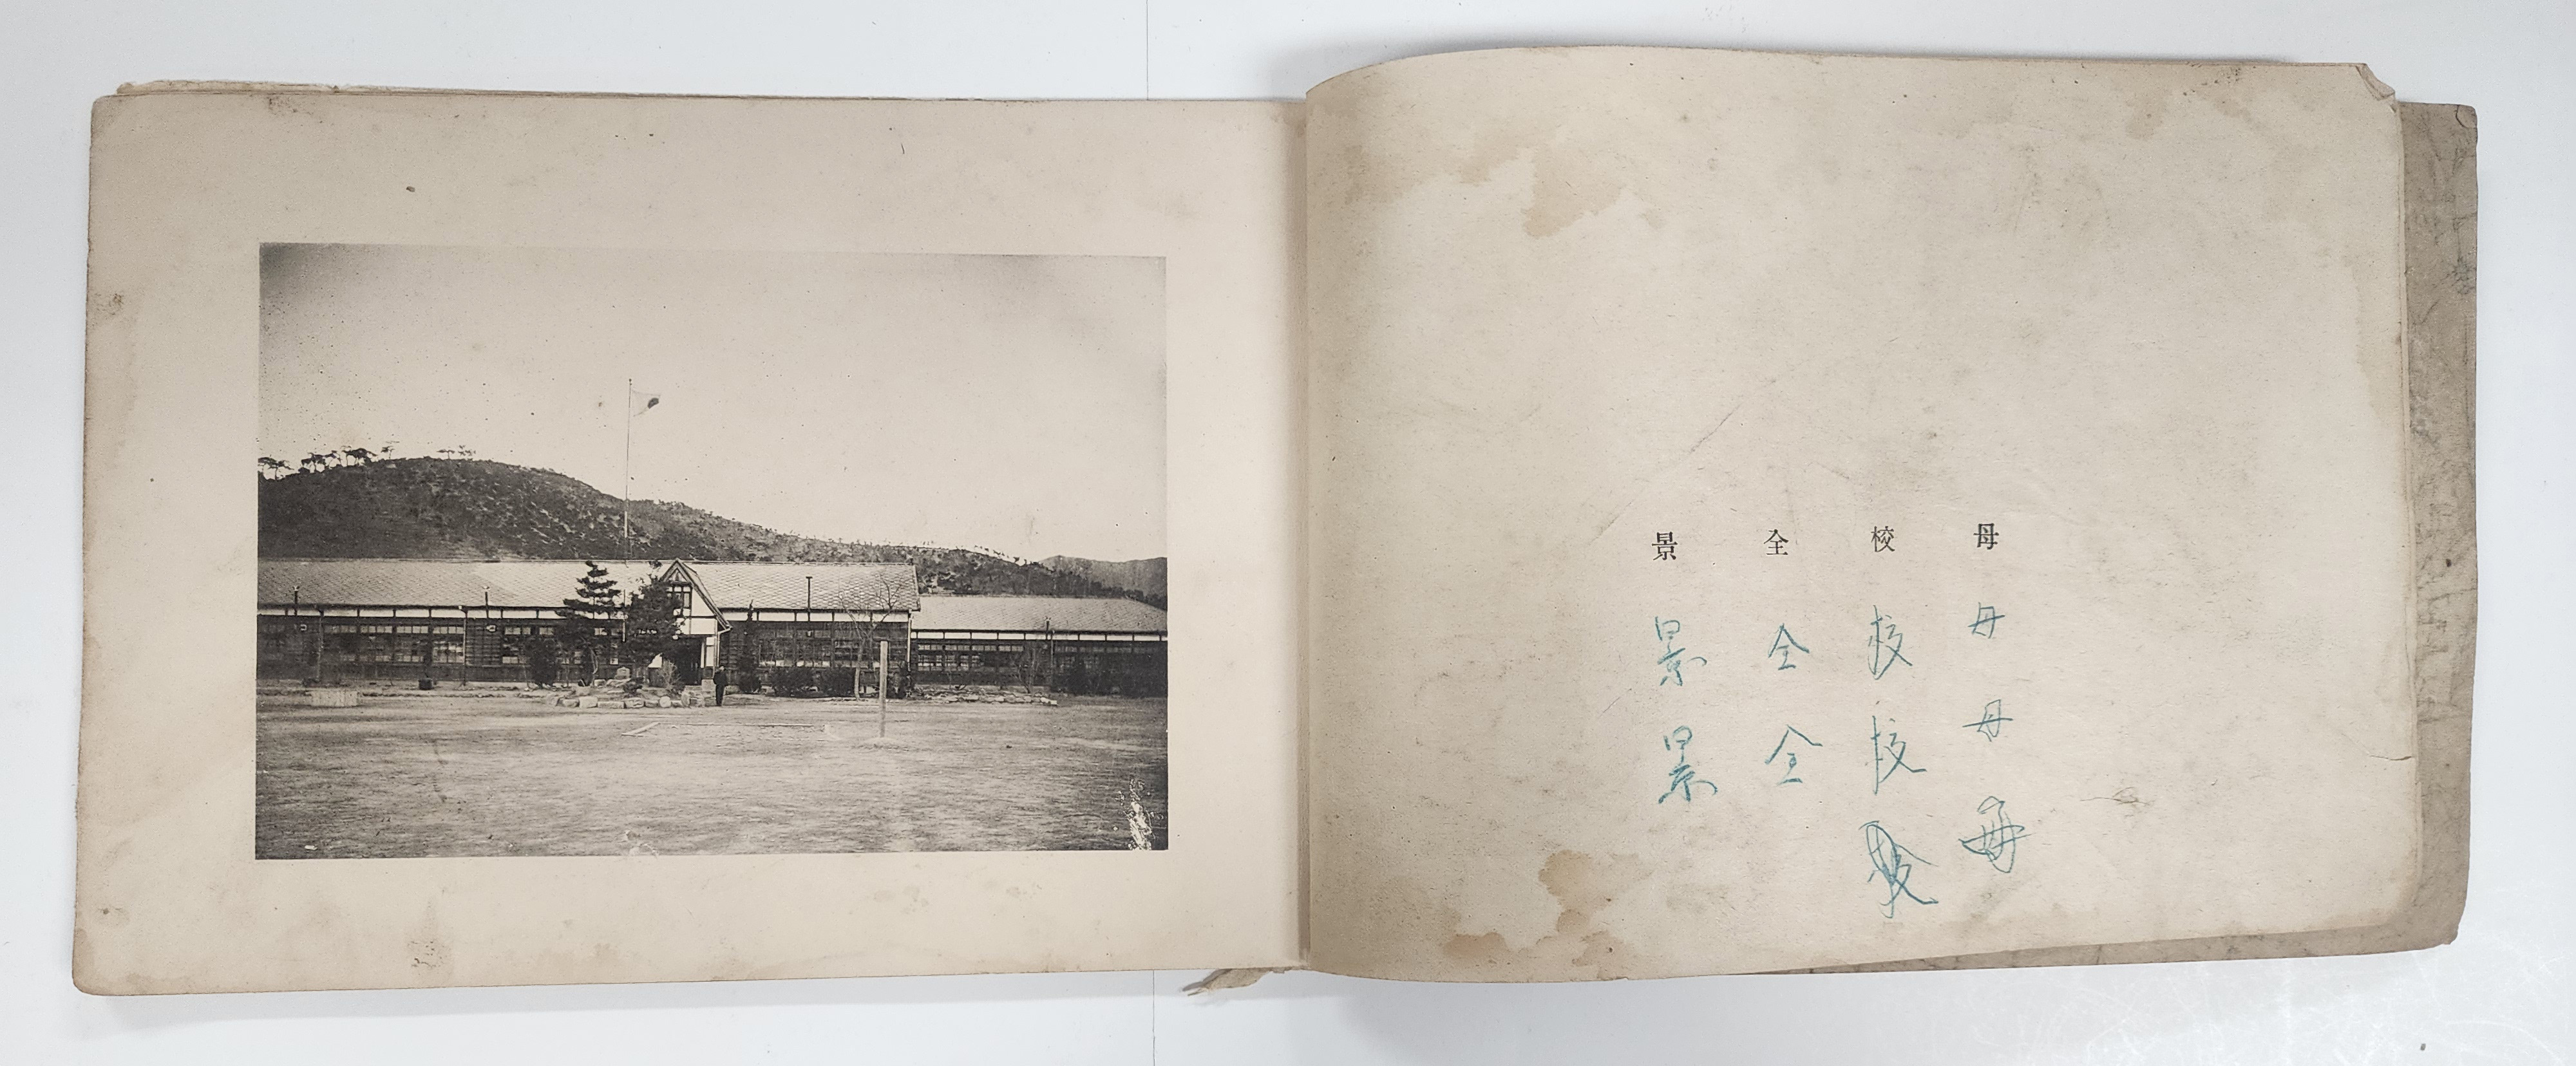 母校全景
母校全景
母校全景
母校